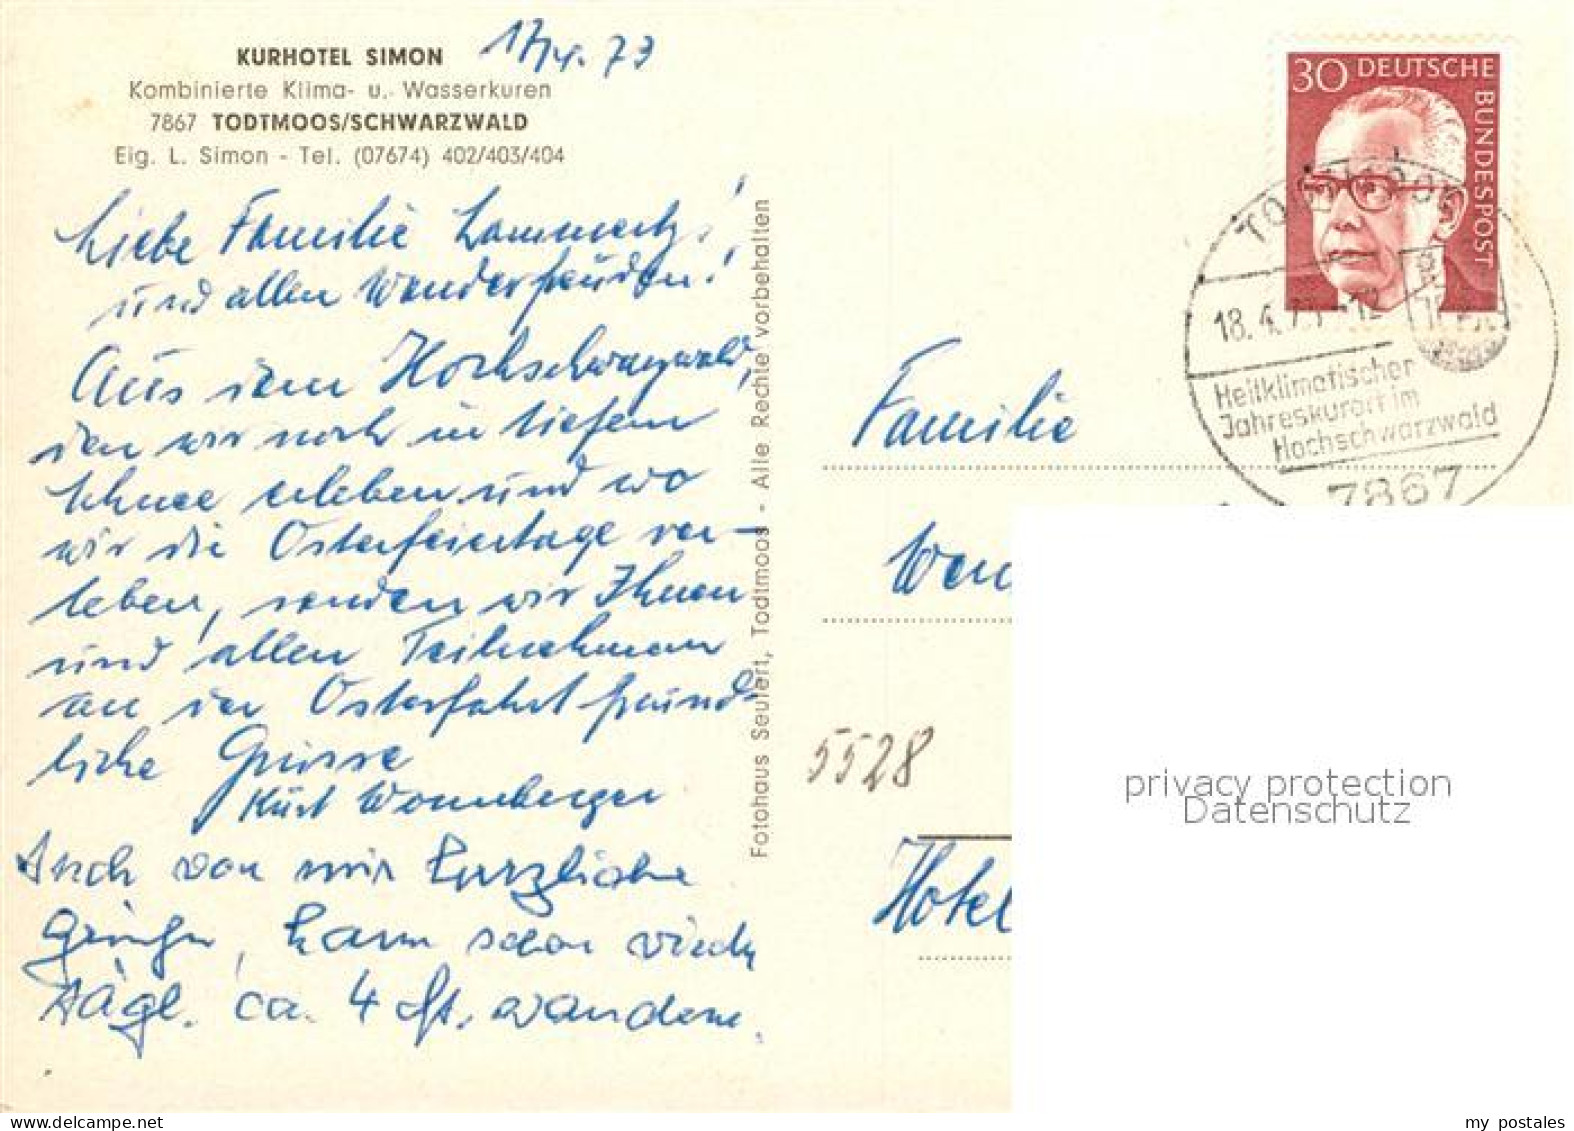 KURHOTEL SIMON
17/4. 73
Kombinierte Klima- u. Wasserkuren
7867 TODTMOOS/SCHWARZWALD
Eig. L. Simon - Tel. (07674) 402/403/404
Liebe Familie Lammertz!
und allen Wanderfreunden!
Aus dem Hochschwarzwald,
den wir noch in tiefem
Schnee erleben und wo
wir die Osterfeiertage ver-
leben, senden wir Ihnen
und allen Teilnehmern
an der Osterfahrt freund-
liche Grüsse
Kurt Wonneberger
Auch von mir herzliche
Grüße, kann schon wieder
tägl. ca. 4 St. wandern.
Fotohaus Seufert, Todtmoos - Alle Rechte vorbehalten
30 DEUTSCHE
BUNDESPOST
TODTMOOS
18.4.73-12
Heilklimatischer
Jahreskurort im
Hochschwarzwald
7867
Familie
5528
Hotel
privacy protection
Datenschutz
my postales